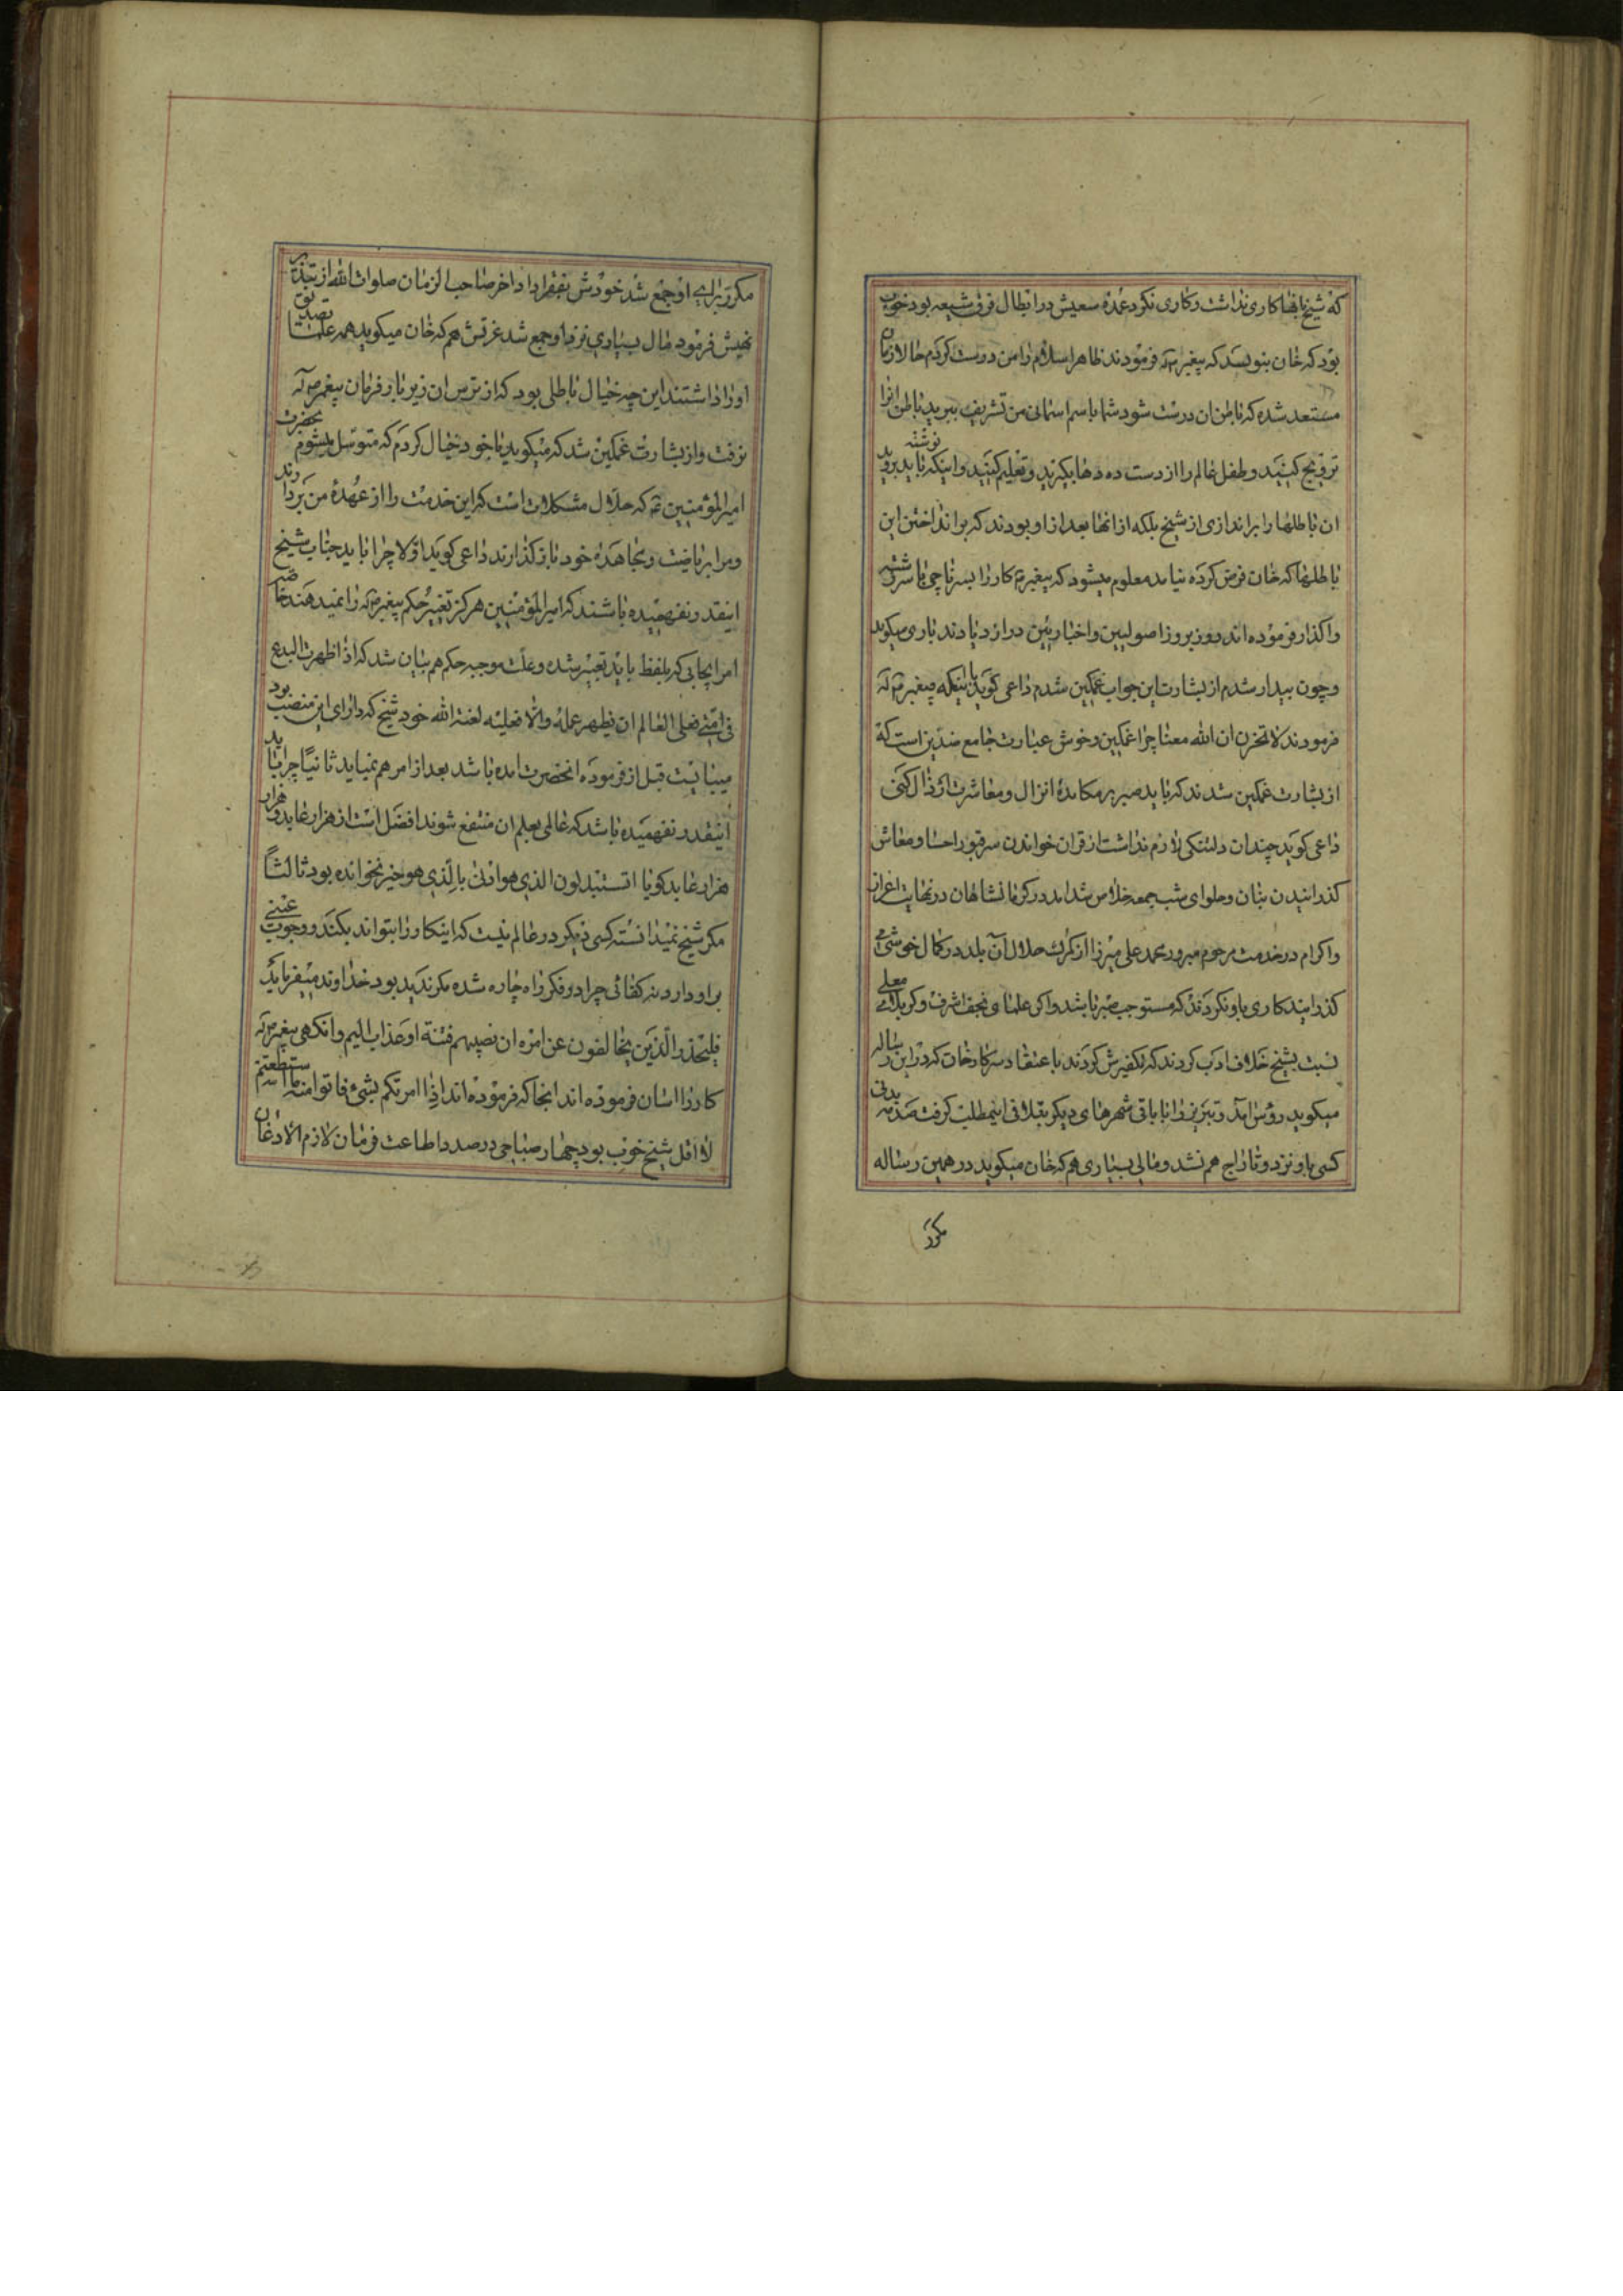 که شیخ بانها کاری نداشت و کاری نکرد عمده سعیش در ابطال فرق شیعه بود خوب
بود که خان بنویسد که پیغمبر فرمودند ظاهر اسلام را من درست کردم حالا زمان
مستعد شده که باطن ان درست شود شما باسم اسمانی من تشریف ببرید باطن انرا
ترویج کنید و طفل عالم را از دست ده دهها بگیرید و تعلیم کنید و اینکه نوشته باید بروید
ان باطلها را براندازی از شیخ بلکه از انها بعد از او بودند که برانداختن این
باطلها که خان فرض کرده نیامد معلوم میشود که پیغمبر کار را بسر
واگذار فرموده اند روز بروز اصولیین و اخباریین در ازدیادند باری میگوید
و چون بیدار شدم از بشارت این جواب غمگین شدم داعی گوید با اینکه پیغمبر
فرمودند لا تحزن ان الله معنا چرا غمگین و خوش عبارت جامع ضدین است که
از بشارت غمگین شدند که باید صبر بر مکابدهٔ انزال و معاشرت ارذال کنی
داعی گوید چندان دلتنگی لازم نداشت از قران خواندن سر قبور احسا و معاش
گذرانیدن بنان و حلوای شب جمعه خلاص شد امد در کرمانشاهان در نهایت اعزاز
و اکرام در خدمت مرحوم مبرور محمد علی میرزا از گمرک حلال آن بلد در کمال خوشی
گذرانید کاری باو نکردند که مستوجب صبر باشد و اگر علمای نجف اشرف و کربلای معلی
نسبت بشیخ خلاف ادب کردند که تکفیرش کردند باعتقاد سرکار خان که در این رساله
میگوید روس آمد و تبریز را با باقی شهرهای دیگر بتلافی اینمطلب گرفت صدمه بدنی
کسی باو نزد و تاراج هم نشد و مالی بسیاری هم که خان میگوید در همین رساله
مکرر
مکرر برای او جمع شد خودش بفقرا داد اخر صاحب الزمان صلوات الله از تبذیر
نهیش فرمود مال بسیاری نزد او جمع شد عزتش هم که خان میگوید همه علما تصدیق
او را داشتند این چه خیال باطلی بود که از ترس ان زیر بار فرمان پیغمبر
نرفت و از بشارت غمگین شد که میگوید با خود خیال کردم که متوسل میشوم بحضرت
امیرالمؤمنین که حلال مشکلات است که این خدمت را از عهدهٔ من بردارند
و مرا بریاضت و مجاهدهٔ خود باز گذارند داعی گوید اولا چرا باید جناب شیخ
اینقدر نفهمیده باشند که امیرالمؤمنین هرگز تغییر حکم پیغمبر را نمیدهند خاصه
امر ایجابی که بلفظ باید تعبیر شده و علت موجبه حکم هم بیان شد که اذا ظهرت البدع
فی امتی فعلی العالم ان یظهر علمه والا فعلیه لعنة الله خود شیخ که دارای این منصب بود
میبایست قبل از فرموده انحضرت امده باشد بعد از امر هم نمیاید ثانیاً چرا باید
اینقدر نفهمیده باشد که عالمی بعلم ان منتفع شوند افضل است از هزار عابد و هزار
هزار عابد گویا اتستبدلون الذی هو ادنی بالذی هو خیر نخوانده بود ثالثاً
مگر شیخ نمیدانسته کسی دیگر در عالم نیست که اینکار را بتواند بکند و وجوب عینی
بر او دارد نه کفائی چرا در فکر راه چاره شده مگر ندید بود خداوند میفرماید
فلیحذر الذین یخالفون عن امره ان تصیبهم فتنة او عذاب الیم وانگهی پیغمبر
کار را اسان فرموده اند انجا که فرموده اند اذا امرتکم بشئ فاتوا منه ما استطعتم
لا اقل شیخ خوب بود چهار صباحی در صدد اطاعت فرمان لازم الاذعان